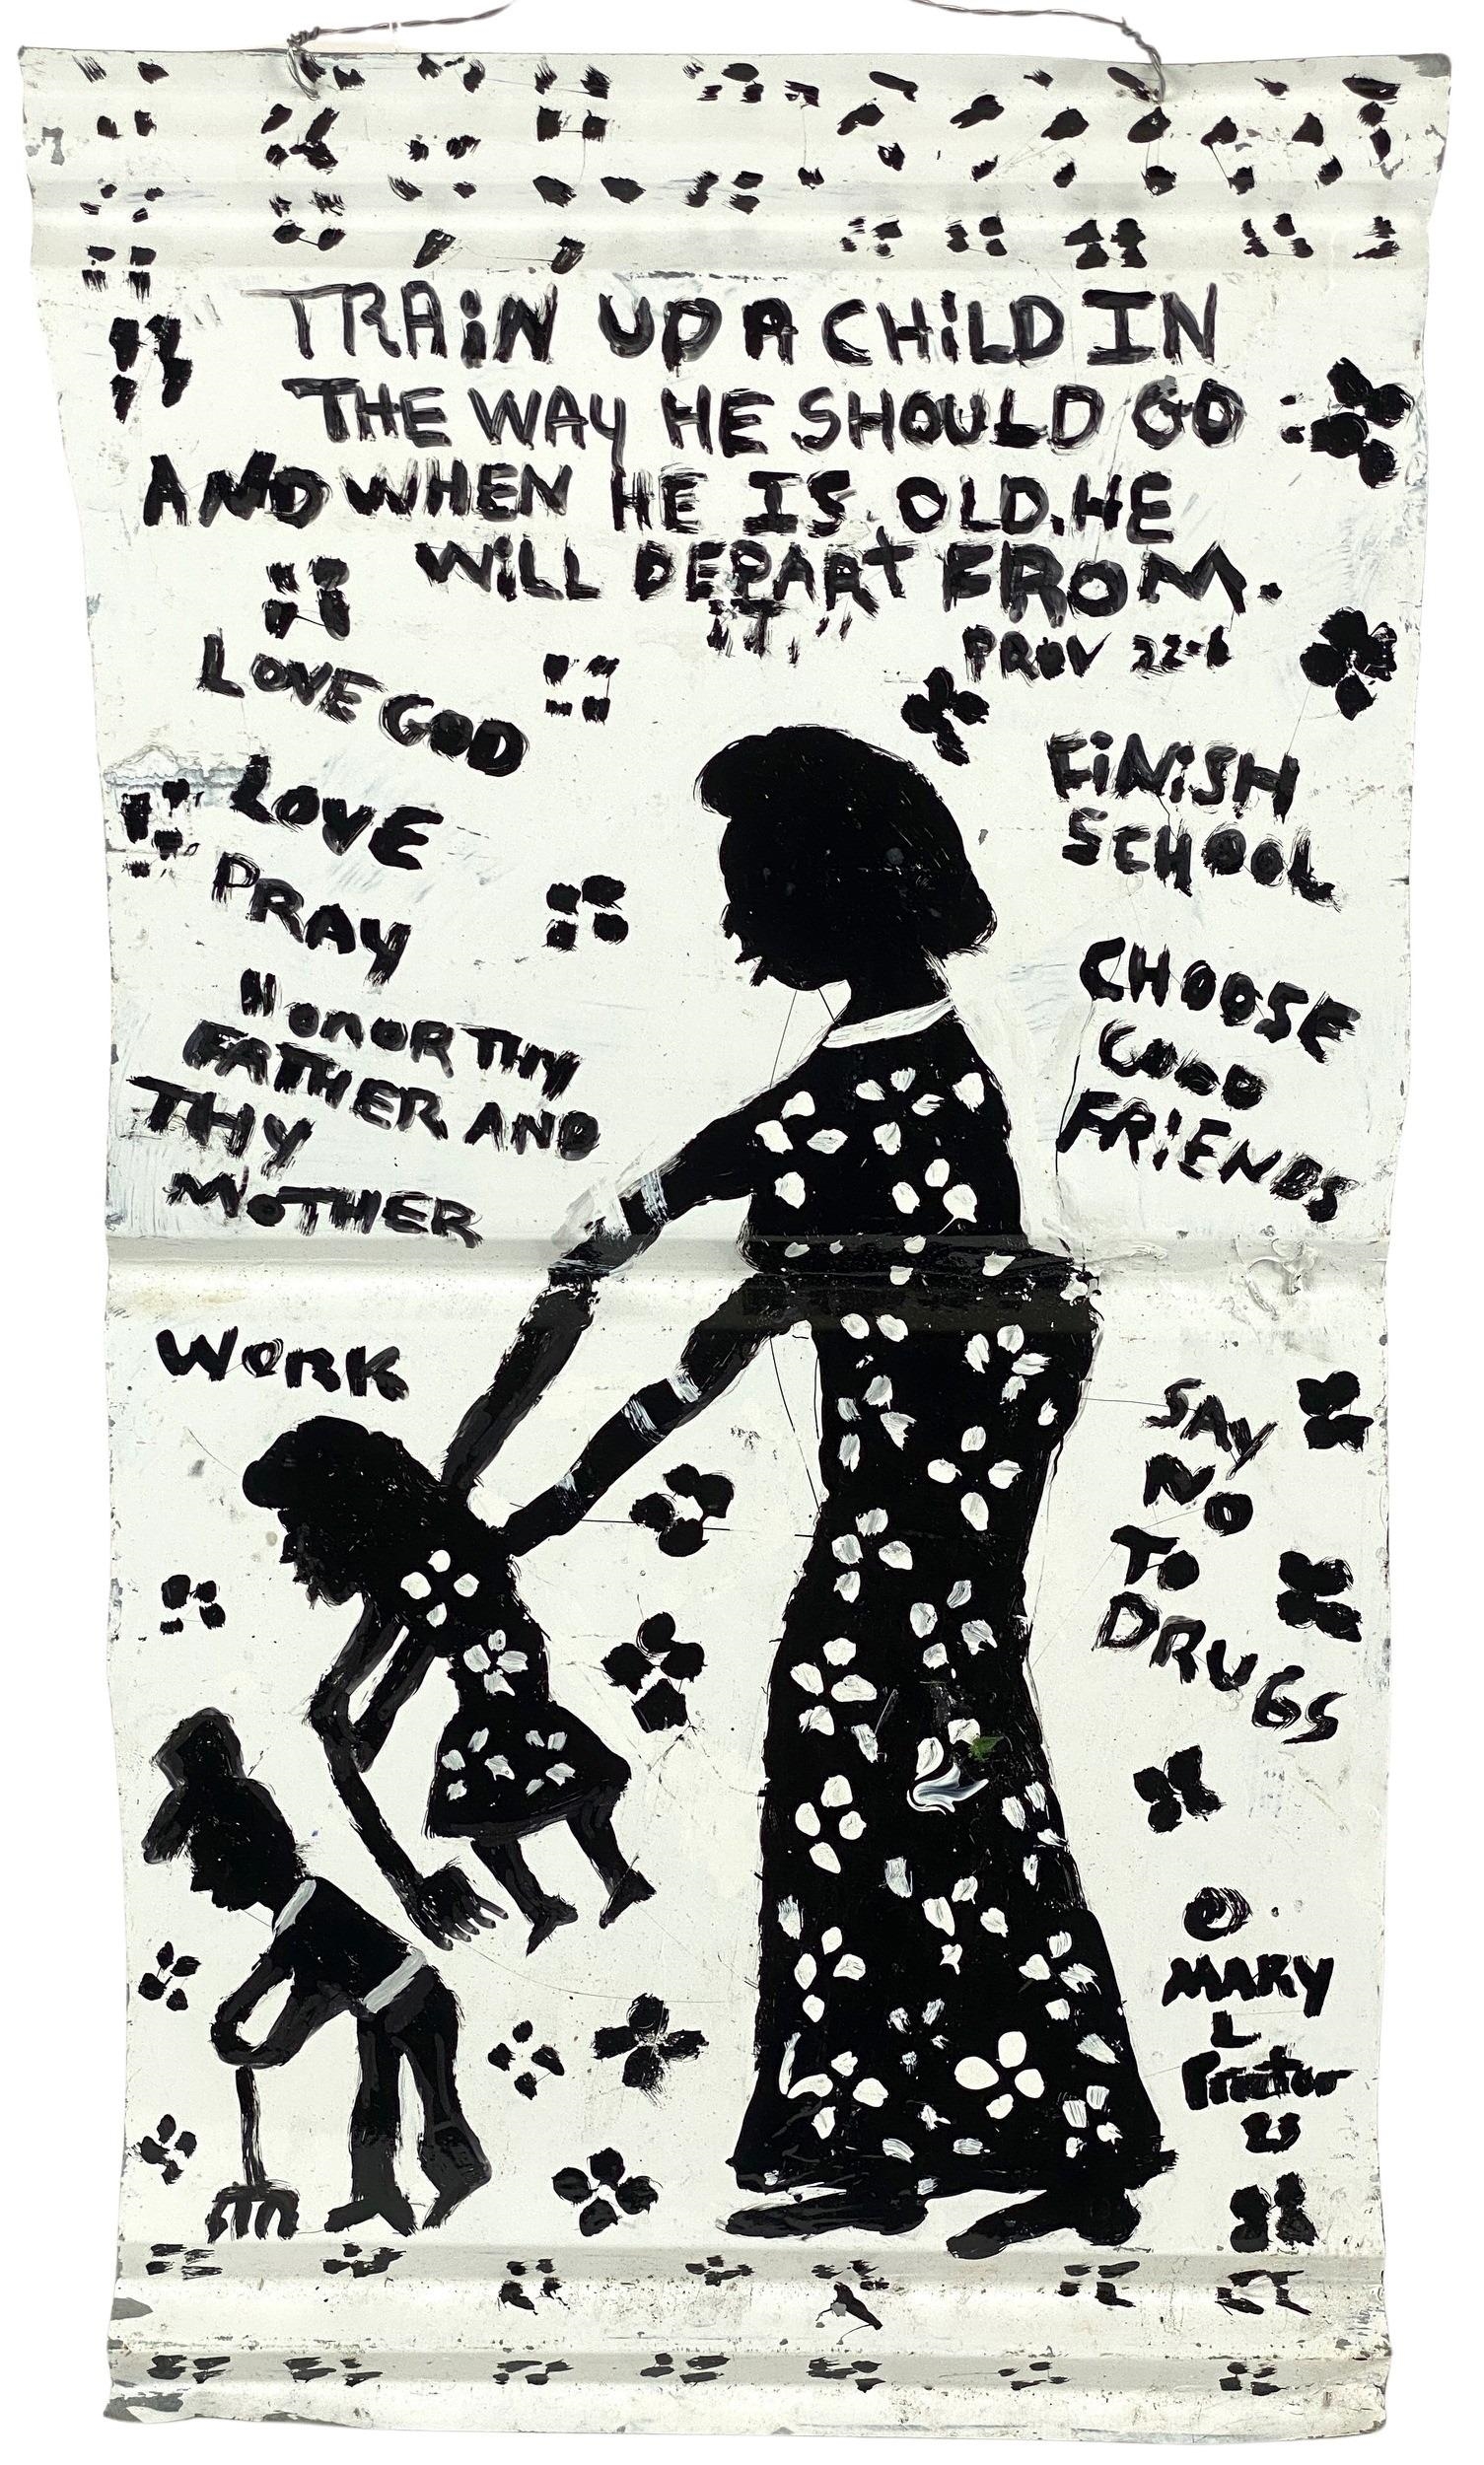 TRAiN UP A CHiLD IN
THE WAY HE SHOULD GO
AND WHEN HE IS OLD. HE
WiLL DEPART FROM.
IT "
PROV 22-6
LOVE GOD
LOVE
PRAY
HONOR THY
FATHER AND
THY
MOTHER
WORK
FiNiSH
SCHOOL
CHOOSE
GOOD
FRiENDS
SAY
NO
TO
DRUGS
©
MARY
L
Proctor